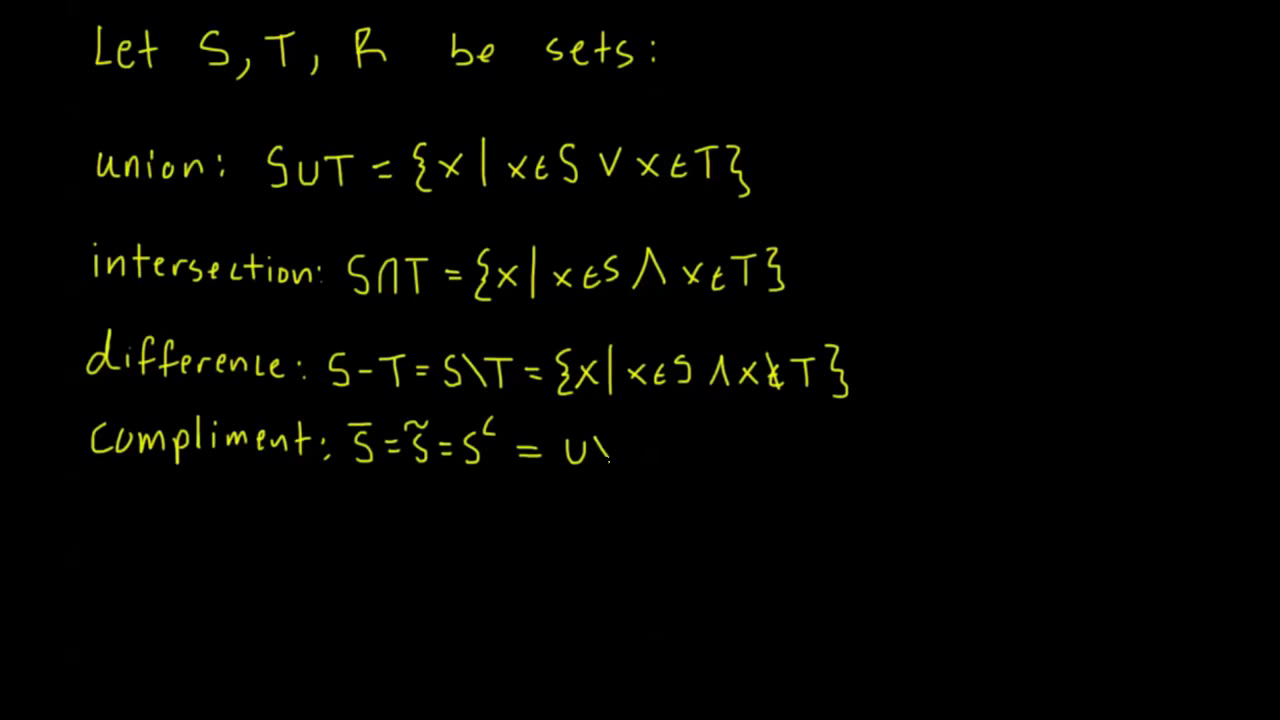 Let S, T, R be sets:
union: S∪T = {x | x∈S ∨ x∈T}
intersection: S∩T = {x | x∈S ∧ x∈T}
difference: S-T = S\T = {x | x∈S ∧ x∉T}
compliment: S̅ = S̃ = Sᶜ = U\